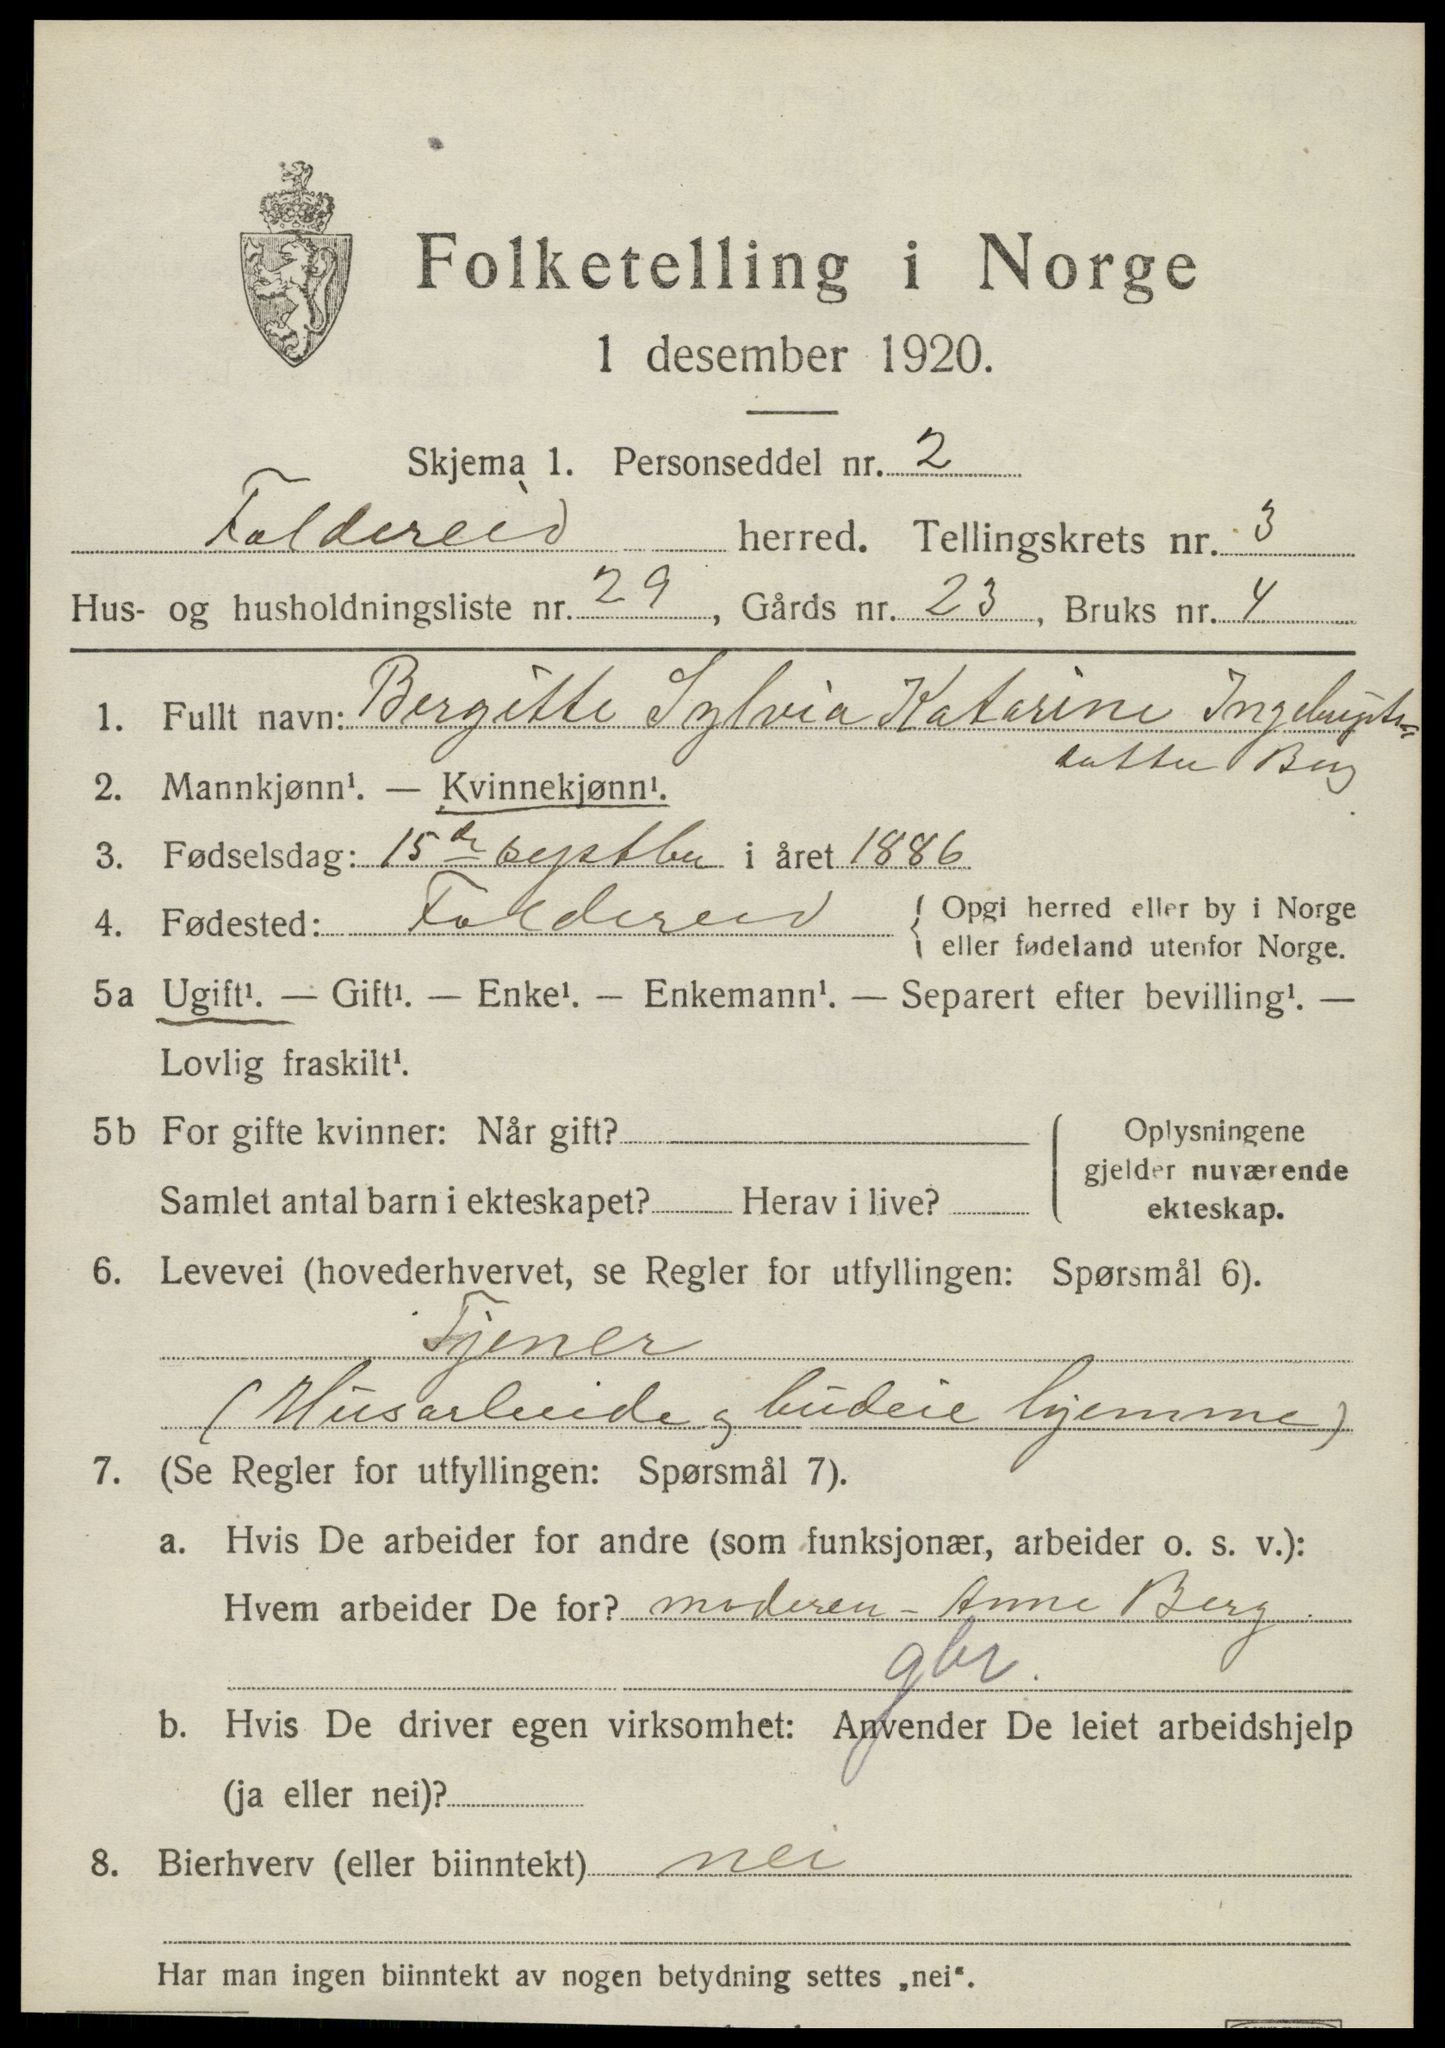 Folketelling i Norge
1 desember 1920.
Skjema 1. Personseddel nr. 2
Foldereid herred. Tellingskrets nr. 3
Hus- og husholdningsliste nr. 29, Gårds nr. 23, Bruks nr. 4
1. Fullt navn: Bergitte Sylvia Katarine Ingebrigts-
datter Berg
2. Mannkjønn¹. — Kvinnekjønn¹.
3. Fødselsdag: 15de septbr i året 1886
4. Fødested: Foldereid { Opgi herred eller by i Norge
eller fødeland utenfor Norge.
5a Ugift¹. — Gift¹. — Enke¹. — Enkemann¹. — Separert efter bevilling¹. —
Lovlig fraskilt¹.
5b For gifte kvinner: Når gift?
Samlet antal barn i ekteskapet? Herav i live?
Oplysningene
gjelder nuværende
ekteskap.
6. Levevei (hovederhvervet, se Regler for utfyllingen: Spørsmål 6).
Tjener
(Husarbeide og budeie hjemme)
7. (Se Regler for utfyllingen: Spørsmål 7).
a. Hvis De arbeider for andre (som funksjonær, arbeider o. s. v.):
Hvem arbeider De for? moderen - Anne Berg
gbr.
b. Hvis De driver egen virksomhet: Anvender De leiet arbeidshjelp
(ja eller nei)?
8. Bierhverv (eller biinntekt) nei
Har man ingen biinntekt av nogen betydning settes „nei“.